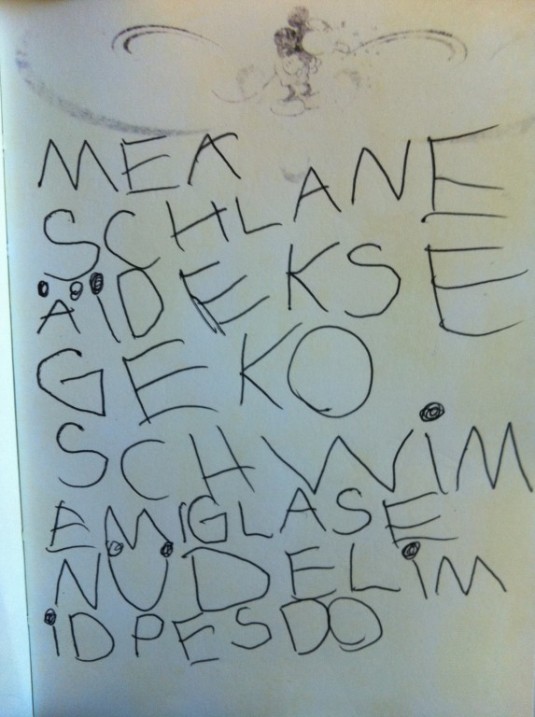 MEA
SCHLANE
ÄiDEKSE
GEKO
SCHWiM
EMIGLASE
NÜDELiM
iDPESDO